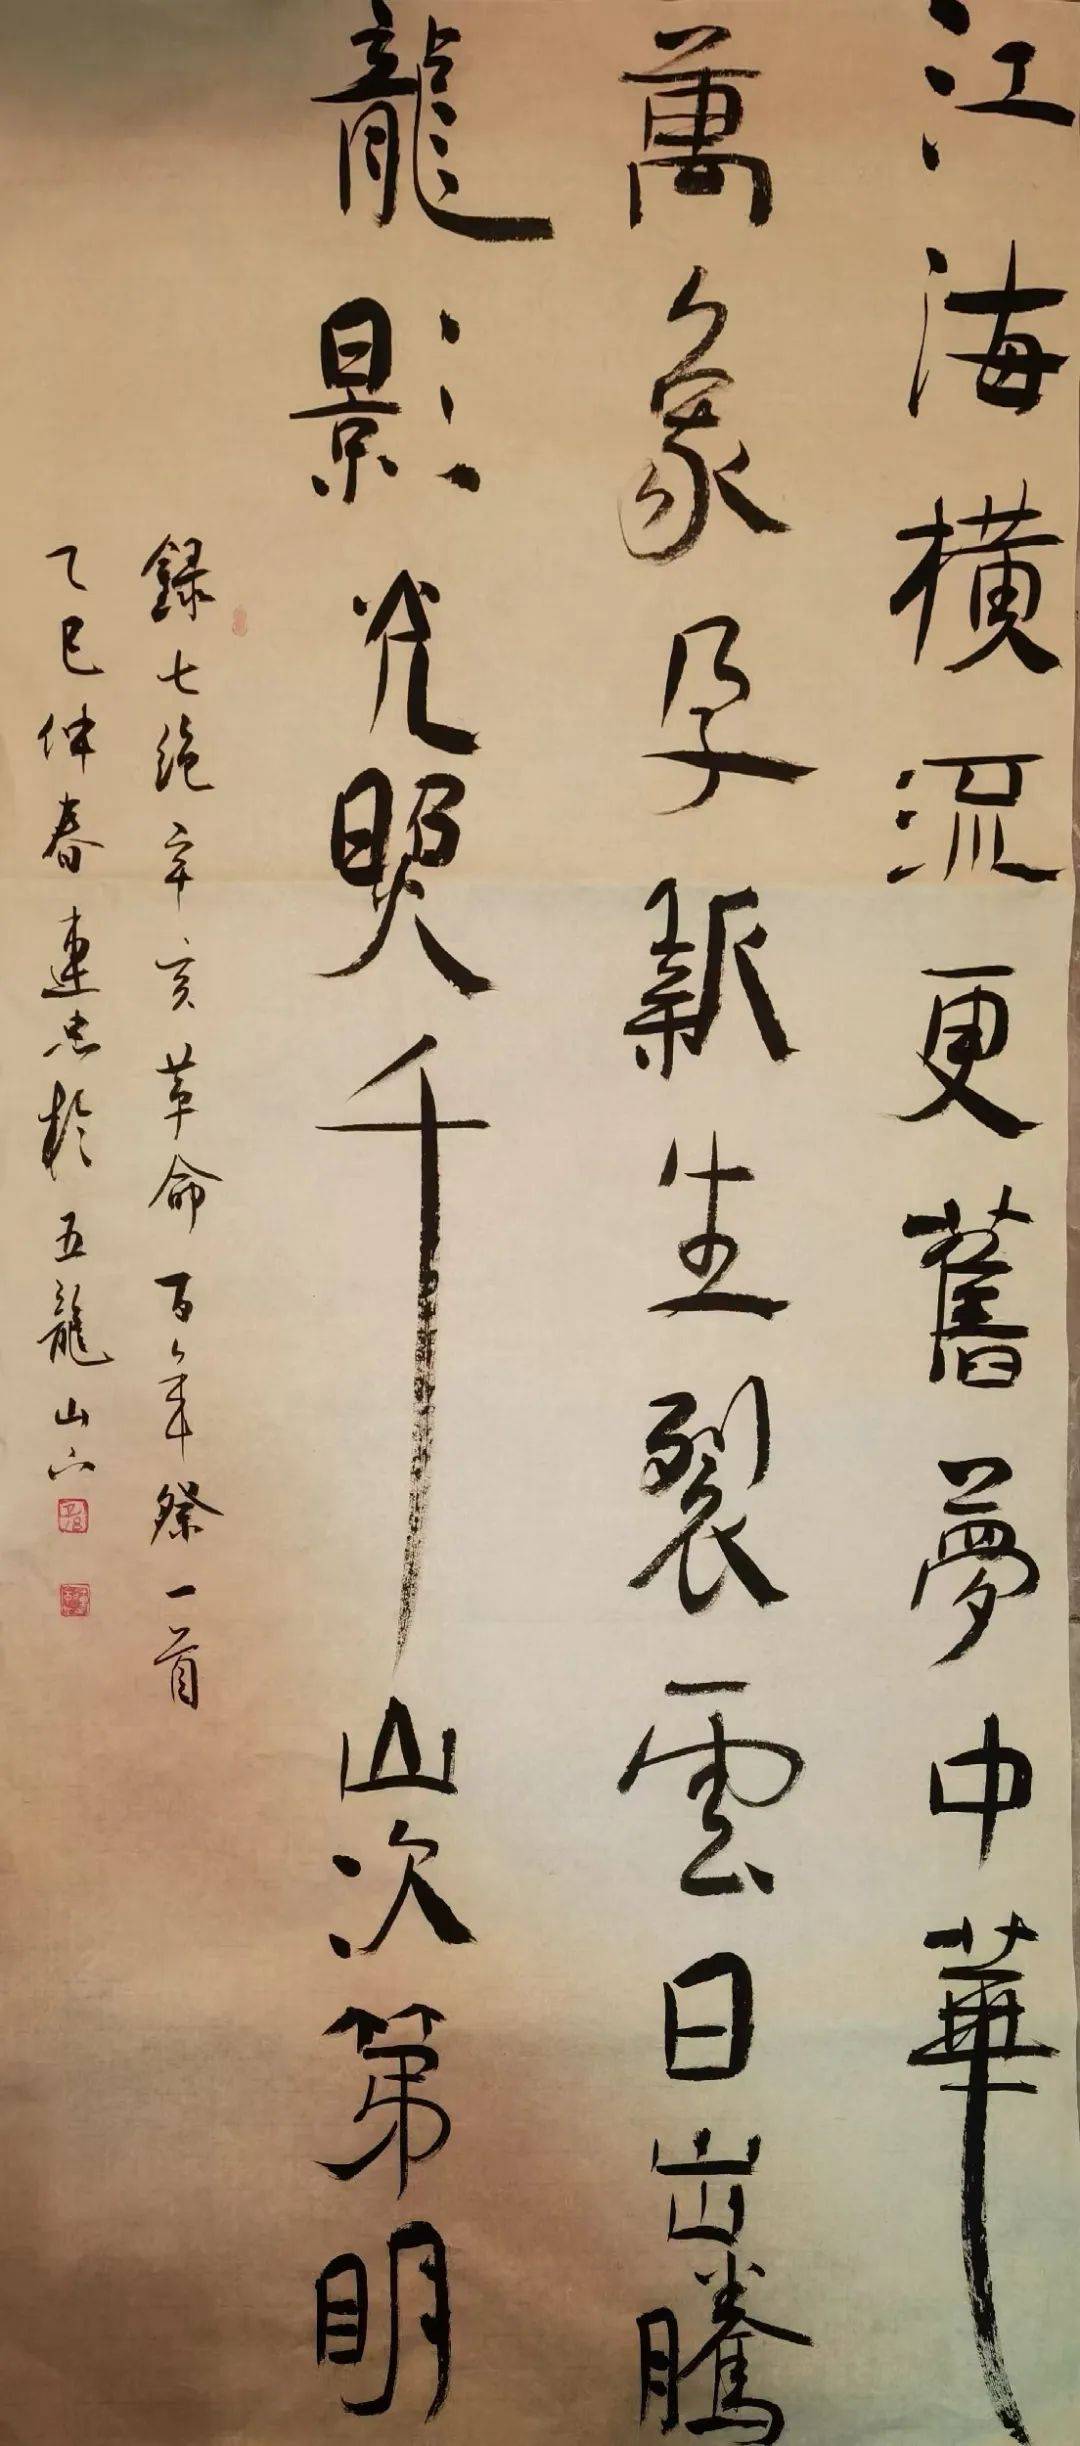 江海橫流更舊夢中華
萬象孕新生裂雲日出騰
龍影光照千山次第明
錄七絕辛亥革命百年祭一首
乙巳仲春連忠於五龍山下